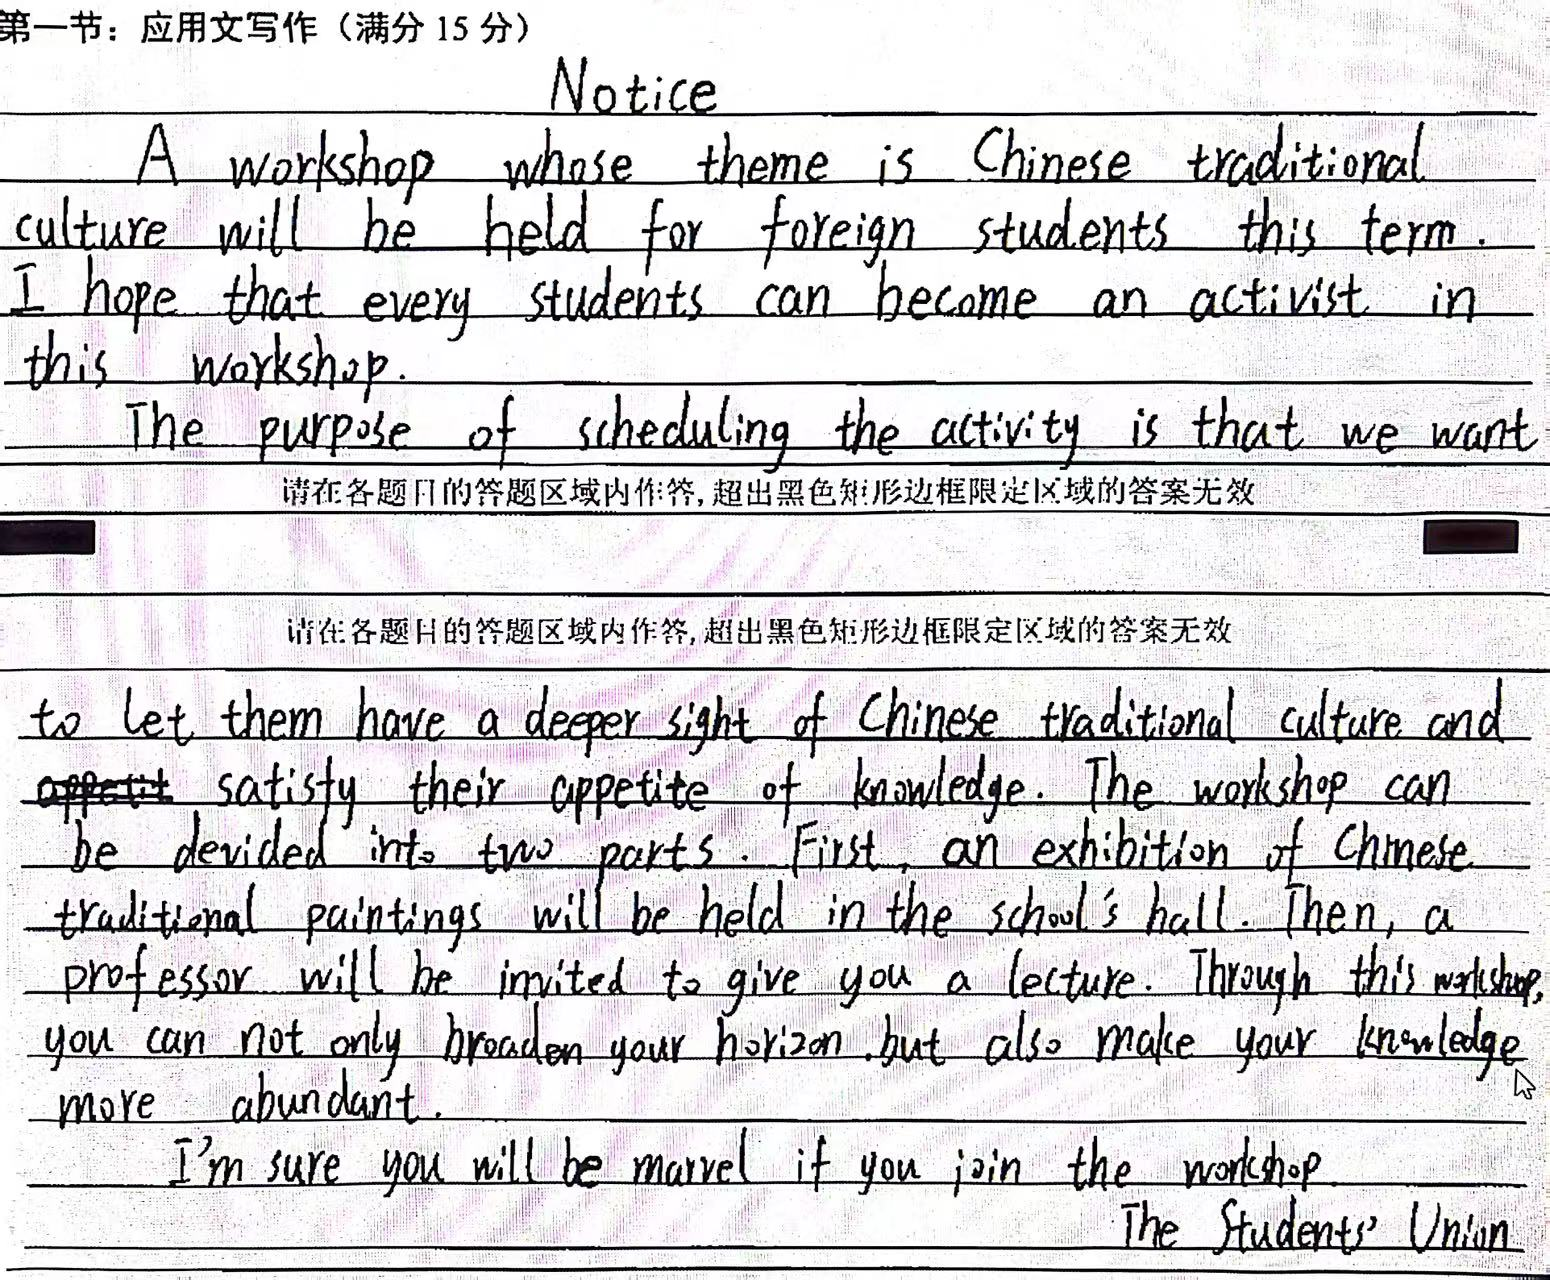 第一节：应用文写作（满分 15 分）
Notice
A workshop whose theme is Chinese traditional
culture will be held for foreign students this term.
I hope that every students can become an activist in
this workshop.
The purpose of scheduling the activity is that we want
请在各题目的答题区域内作答,超出黑色矩形边框限定区域的答案无效
请在各题目的答题区域内作答,超出黑色矩形边框限定区域的答案无效
to let them have a deeper sight of Chinese traditional culture and
appetit satisfy their appetite of knowledge. The workshop can
be devided into two parts. First, an exhibition of Chinese
traditional paintings will be held in the school's hall. Then, a
professor will be invited to give you a lecture. Through this workshop,
you can not only broaden your horizon but also make your knowledge
more abundant.
I'm sure you will be marvel if you join the workshop.
The Students' Union